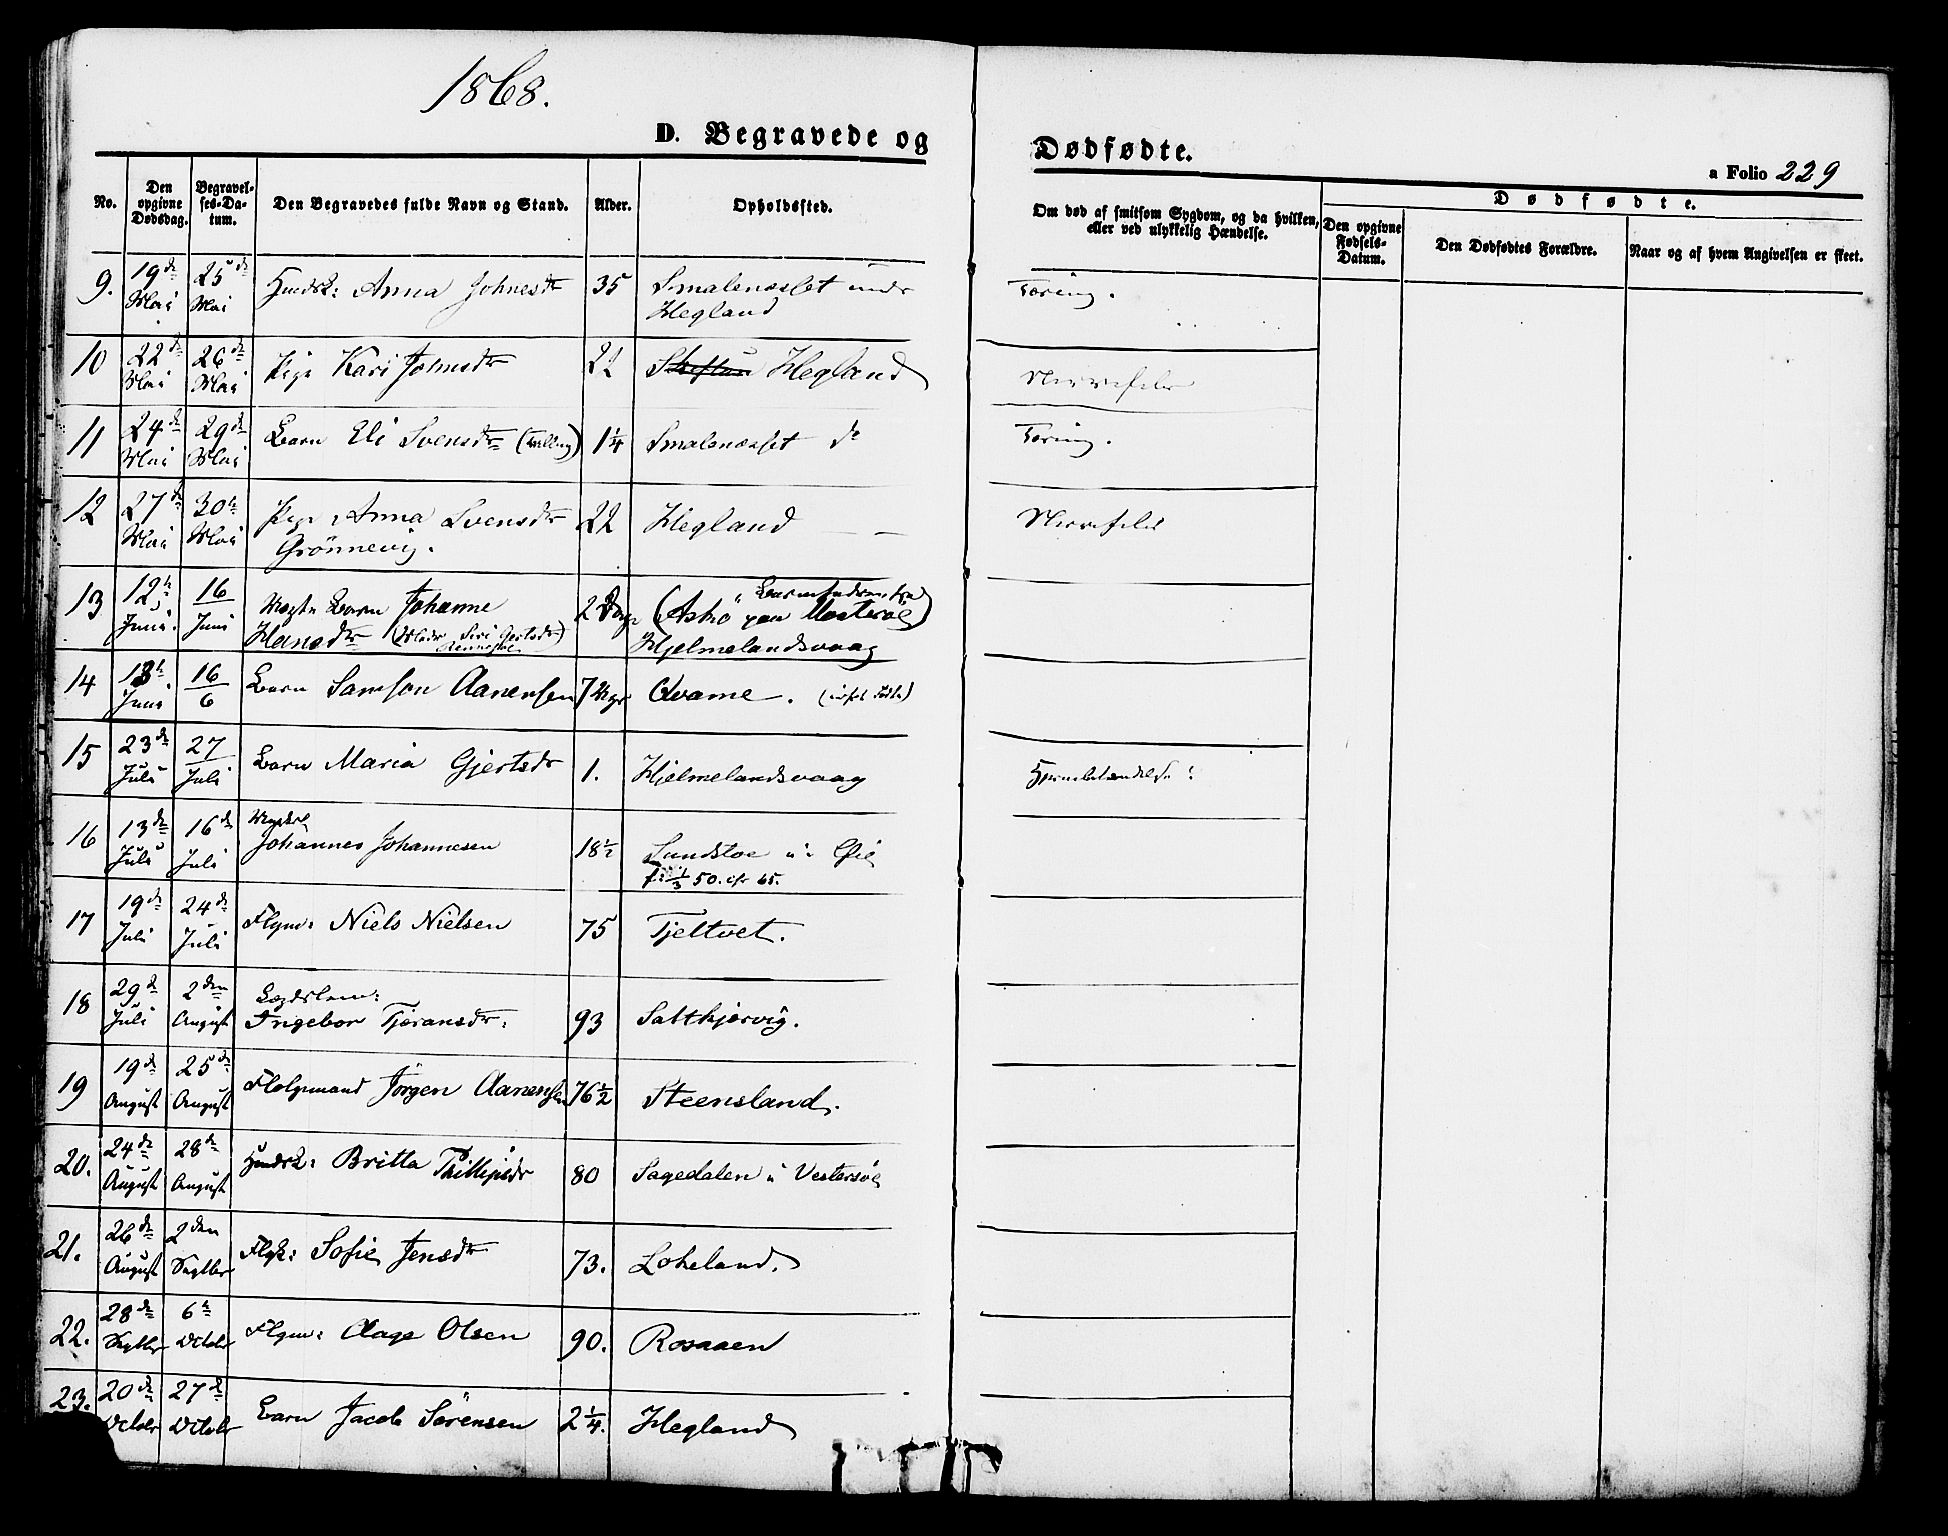 1868.
D. Begravede og Dødfødte.
a Folio 229
No.
Den opgivne Dødsdag.
Begravelses-Datum.
Den Begravedes fulde Navn og Stand.
Alder.
Opholdssted.
Om død af smitsom Sygdom, og da hvilken, eller ved ulykkelig Hændelse.
Dødfødte.
Den opgivne Fødsels-Datum.
Den Dødfødtes Forældre.
Naar og af hvem Angivelsen er skeet.
9. 19de Mai 25de Mai Anna Johnesdtr 35 Smalenæsset under Hegland Tæring.
10 22de Mai 26de Mai Pige Kari Johnsdtr 22 Hegland Nervefeber
11 24de Mai 29de Mai Barn Eli Svensdtr (Tvilling) 1 1/4 Smalenæsset do Tæring.
12 27de Mai 30te Mai Pige Anna Svensdtr Grönnevig. 22 Hegland Nervefeber
13 12te Juni. 16 Juni Barn Johanne Hansdtr (Moder Siri Gjertsdtr) 2 Dage (Askø paa Mosterøe) Hjelmelandsvaag
14 13te Juni 16/6 Barn Samson Aanensen 7 Uger Qvame.
15 23de Juli 27 Juli Barn Maria Gjertsdtr 1. Hjelmelandsvaag Hjernebetændelse
16 13de Juli 16de Juli Johannes Johannesen 18 1/2 Sundstøe u: Øie
50. 65.
17 19de Juli 24de Juli Flgm: Niels Nielsen 75 Tjeltvet.
18 29de Juli 2den August Lægdslem: Ingebor Tjøransdtr: 93 Saltkjærvig.
19 19de August 25de August Følgemand Jörgen Aanensen 76 1/2 Steensland.
20. 24de August 28de August Britta Thillipsdtr 80 Sagedalen u Vestersøe
21. 26de August 2den Septbr Flgk: Sofie Jensdtr 73. Lokeland.
22. 28de Septbr 6te Octobr Flgm: Aage Olsen 90. Rosaaen
23. 20de Octobr 27de Octobr Barn Jacob Sörensen 2 1/4. Hegland